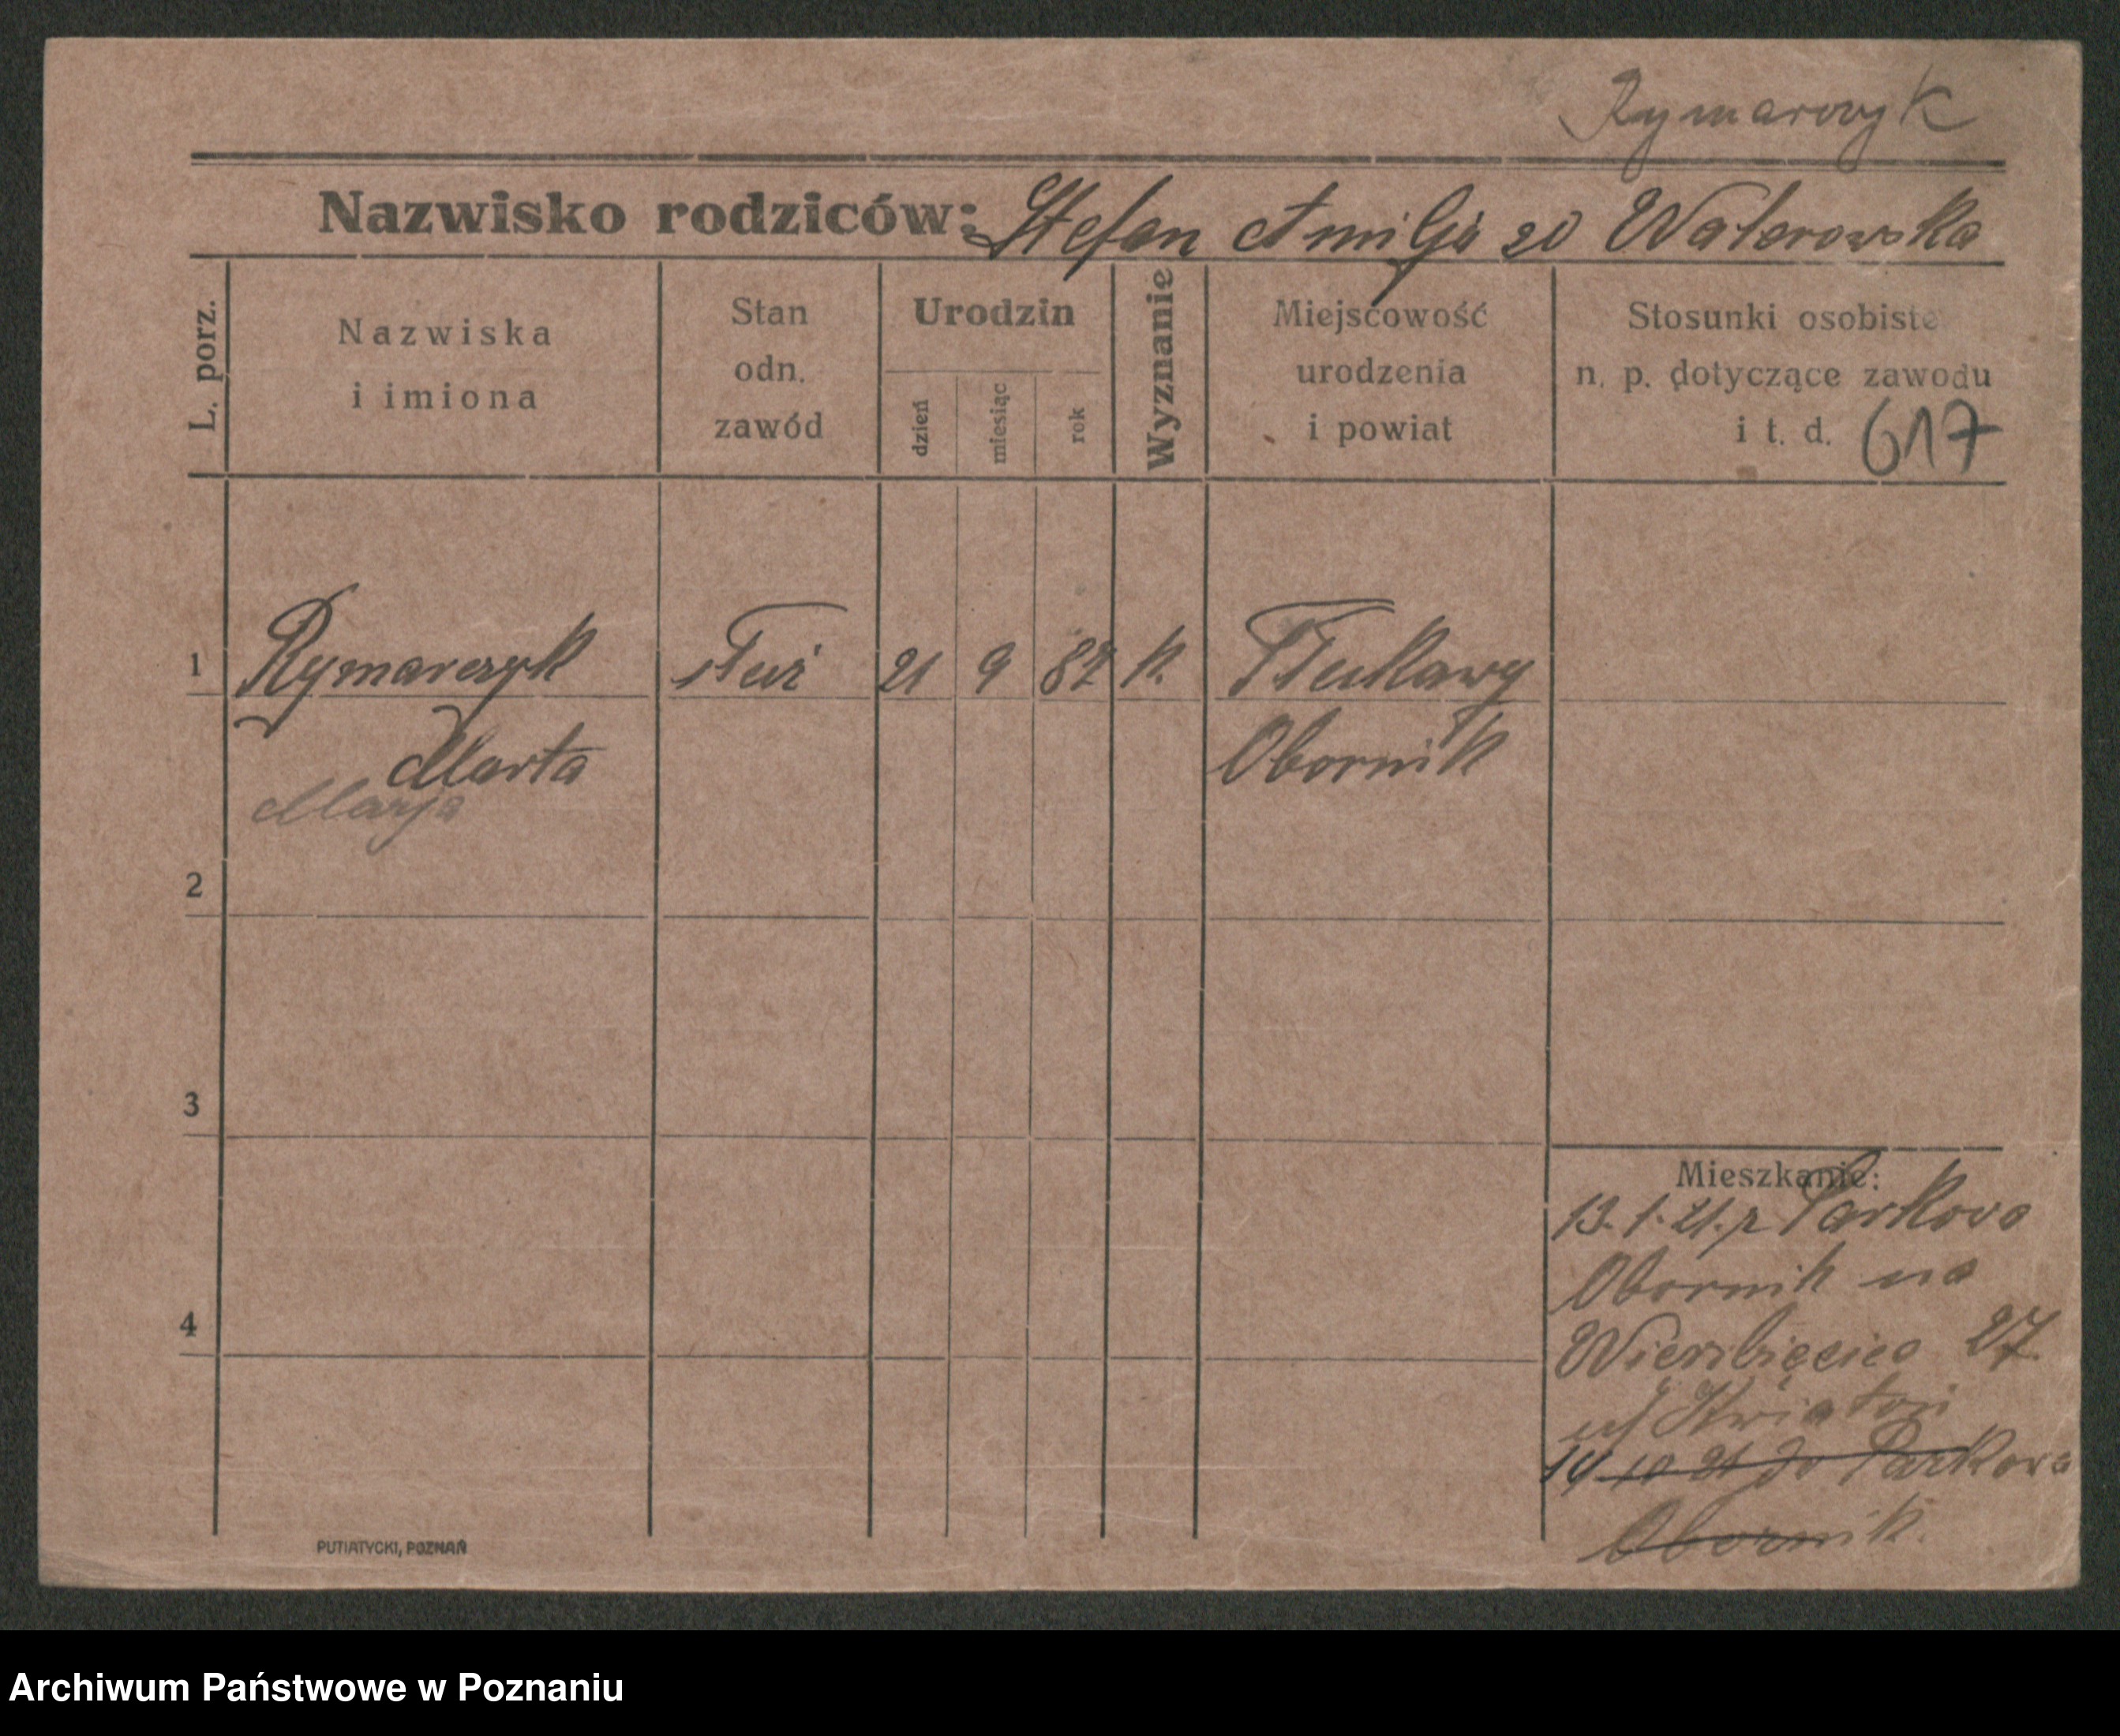 Rymarczyk
Nazwisko rodziców: Stefan Amilja zd Walerowska
L. porz.
Nazwiska
i imiona
Stan
odn.
zawód
Urodzin
dzień
miesiąc
rok
Wyznanie
Miejscowość
urodzenia
i powiat
Stosunki osobiste
n. p. dotyczące zawodu
i t. d. 617
1 Rymarczyk służ 21 9 87 k. Tłukawy
Marta Obornik
Marja
2
3
4
Mieszkanie:
13. 1. 21. z Parkowo
Obornik na
Wierzbięcice 27
14 10 21 do Parkowa
Obornik.
PUTIATYCKI, POZNAŃ
Archiwum Państwowe w Poznaniu